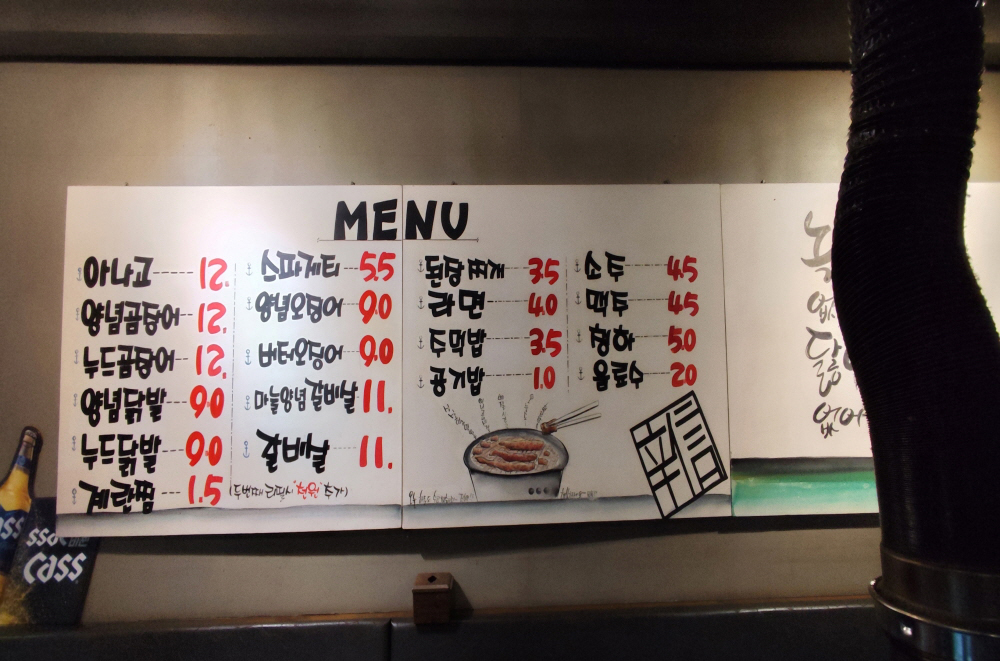 MENU
아나고 12.
양념곰장어 12.
누드곰장어 12.
양념닭발 9.0
누드닭발 9.0
계란찜 1.5
스파게티 5.5
양념오징어 9.0
버터오징어 9.0
마늘양념갈비살 11.
갈비살 11.
3.5
라면 4.0
주먹밥 3.5
공기밥 1.0
소주 4.5
맥주 4.5
청하 5.0
음료수 2.0
없어
Cass